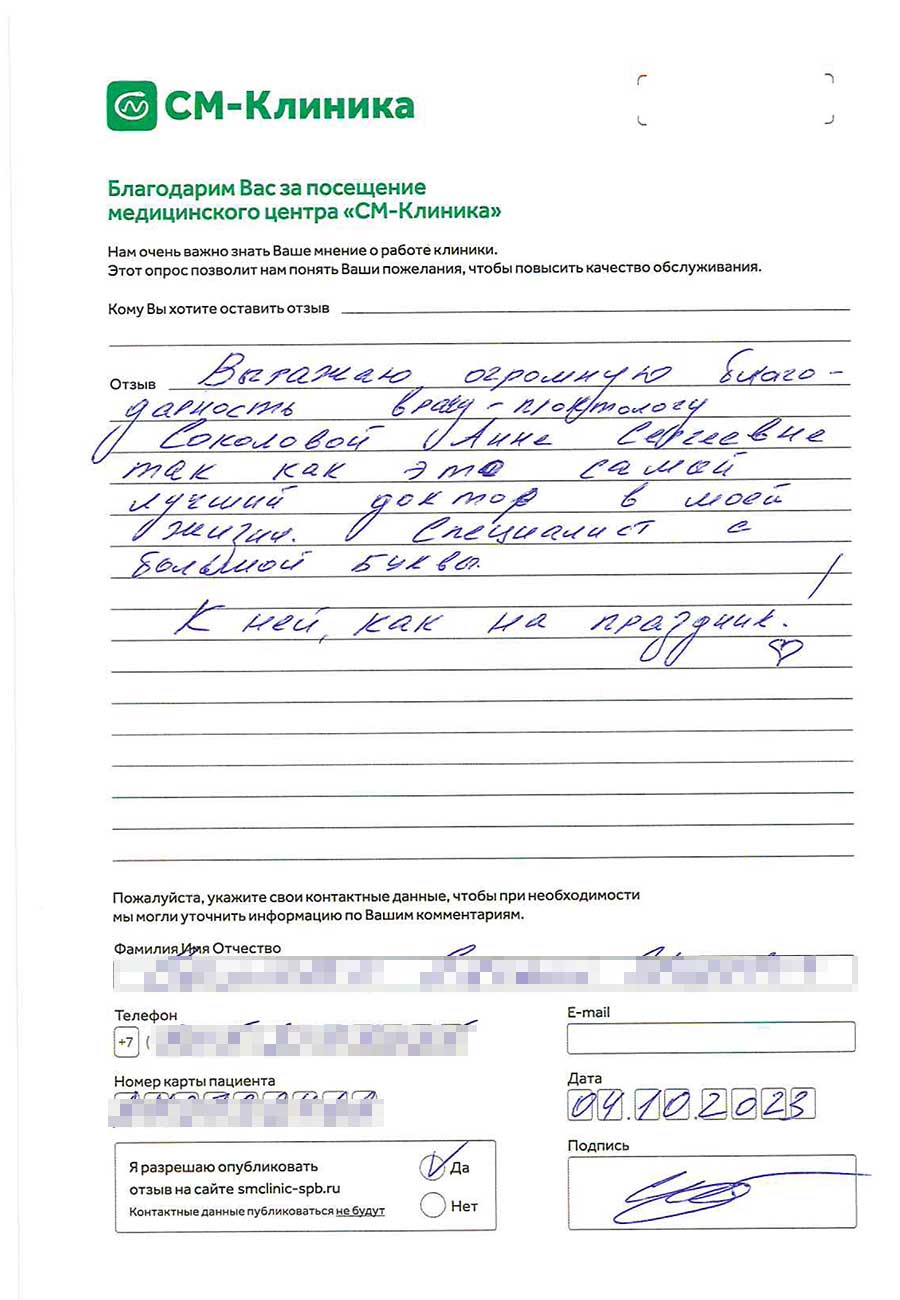 СМ-Клиника
Благодарим Вас за посещение
медицинского центра «СМ-Клиника»
Нам очень важно знать Ваше мнение о работе клиники.
Этот опрос позволит нам понять Ваши пожелания, чтобы повысить качество обслуживания.
Кому Вы хотите оставить отзыв
Отзыв Выражаю огромную благо-
дарность врачу-проктологу
Соколовой Анне Сергеевне
так как это самой
лучший доктор в моей
жизни. Специалист с
большой буквы.
К ней, как на праздник!
Пожалуйста, укажите свои контактные данные, чтобы при необходимости
мы могли уточнить информацию по Вашим комментариям.
Фамилия Имя Отчество
Телефон
E-mail
+7 (
Номер карты пациента
Дата
04.10.2023
Я разрешаю опубликовать
отзыв на сайте smclinic-spb.ru
Контактные данные публиковаться не будут
Да
Нет
Подпись